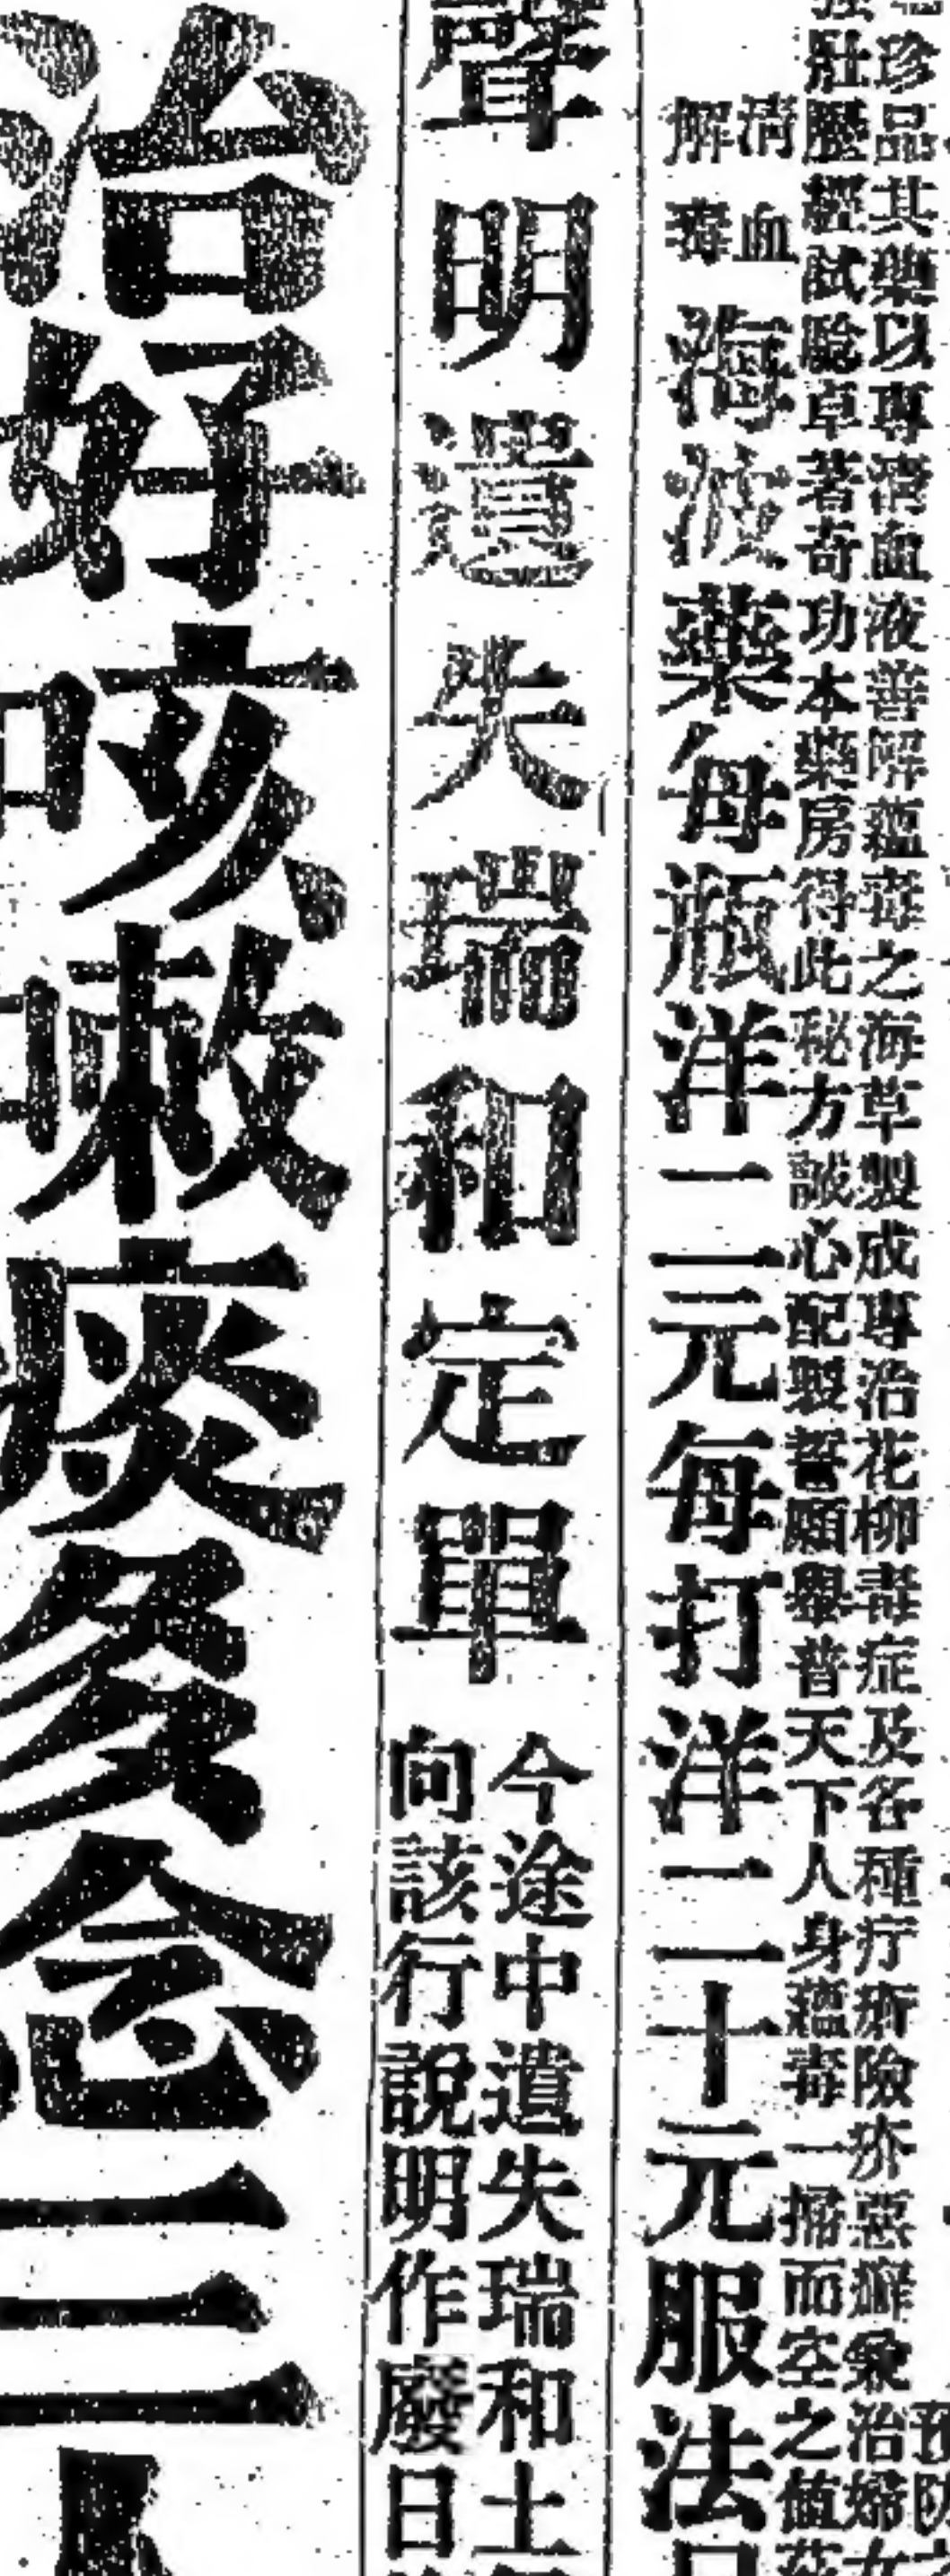 珍品其藥以專清血液善解蘊毒之海草製成專治花柳毒症及各種疔瘡險疥惡癬兼治婦女
壯歷經試驗卓著奇功本藥房得此秘方誠心配製誓願舉普天下人身蘊毒一掃而空之值
清血
解毒
海波藥每瓶洋二元每打洋二十元服法
聲明遺失瑞和定單
今途中遺失瑞和土
向該行說明作廢日
治好咳嗽痰多念三